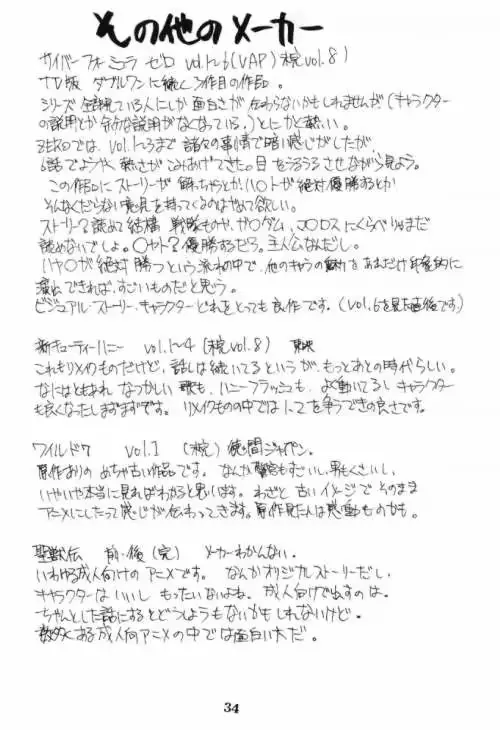 その他のメーカー
サイバーフォーミュラ ゼロ vol.1~6(VAP)(未完vol.8)
TV版 ダブルワンに続く3作目の作品。
シリーズ全部見ている人にしか面白さが伝わらないかもしれませんが(キャラクター
の説明とか余分な説明がなくなっている。)とにかく熱い。
ZEROでは、vol.1~3まで諸々の事情で暗い感じがしたが、
6話でようやく熱さがこみあげてきた。目をうるうるさせながら見よう。
この作品にストーリーが 絶対優勝するとか
そんなくだらない意見を持ってくるのはやめて欲しい。
ストーリー?読めて結構 戦隊ものや、ガ○ダム、J○ロスにくらべりゃまだ
読めないでしょ。○ヤト?優勝するだろう。主人公なんだし。
ハヤ○が絶対勝つという流れの中で、他のキャラの魅力をあれだけ印象的に
演出できれば、すごいものだと思う。
ビジュアル・ストーリー・キャラクターどれをとっても良作です。(vol.6を見た直後です)
新キューティーハニー vol.1~4(未完vol.8) 東映
これもリメイクものだけど、話しは続いてるというが、もっとあとの時代らしい。
なにはともあれ なつかしい 歌も、ハニーフラッシュも、よく動いてるし キャラクター
も良くなったしまずまずです。リメイクものの中では1~2を争うできの良さです。
ワイルド7 vol.1 (未完) 徳間ジャパン。
原作ありの めちゃ古い作品です。なんか警察もすごいし、男もくさいし、
いやいや本当に見ればわかると思います。わざと古いイメージでそのまま
アニメにしたって感じが伝わってきます。原作見た人は感動ものかも。
聖獣伝 前・後(完) メーカーわかんない。
いわゆる成人向けのアニメです。なんかオリジナルストーリーだし、
キャラクターはいいし もったいないよね。成人向けで出すのは。
ちゃんとした話にするとどうしようもないかもしれないけど。
数多くある成人向アニメの中では面白い本だ。
34